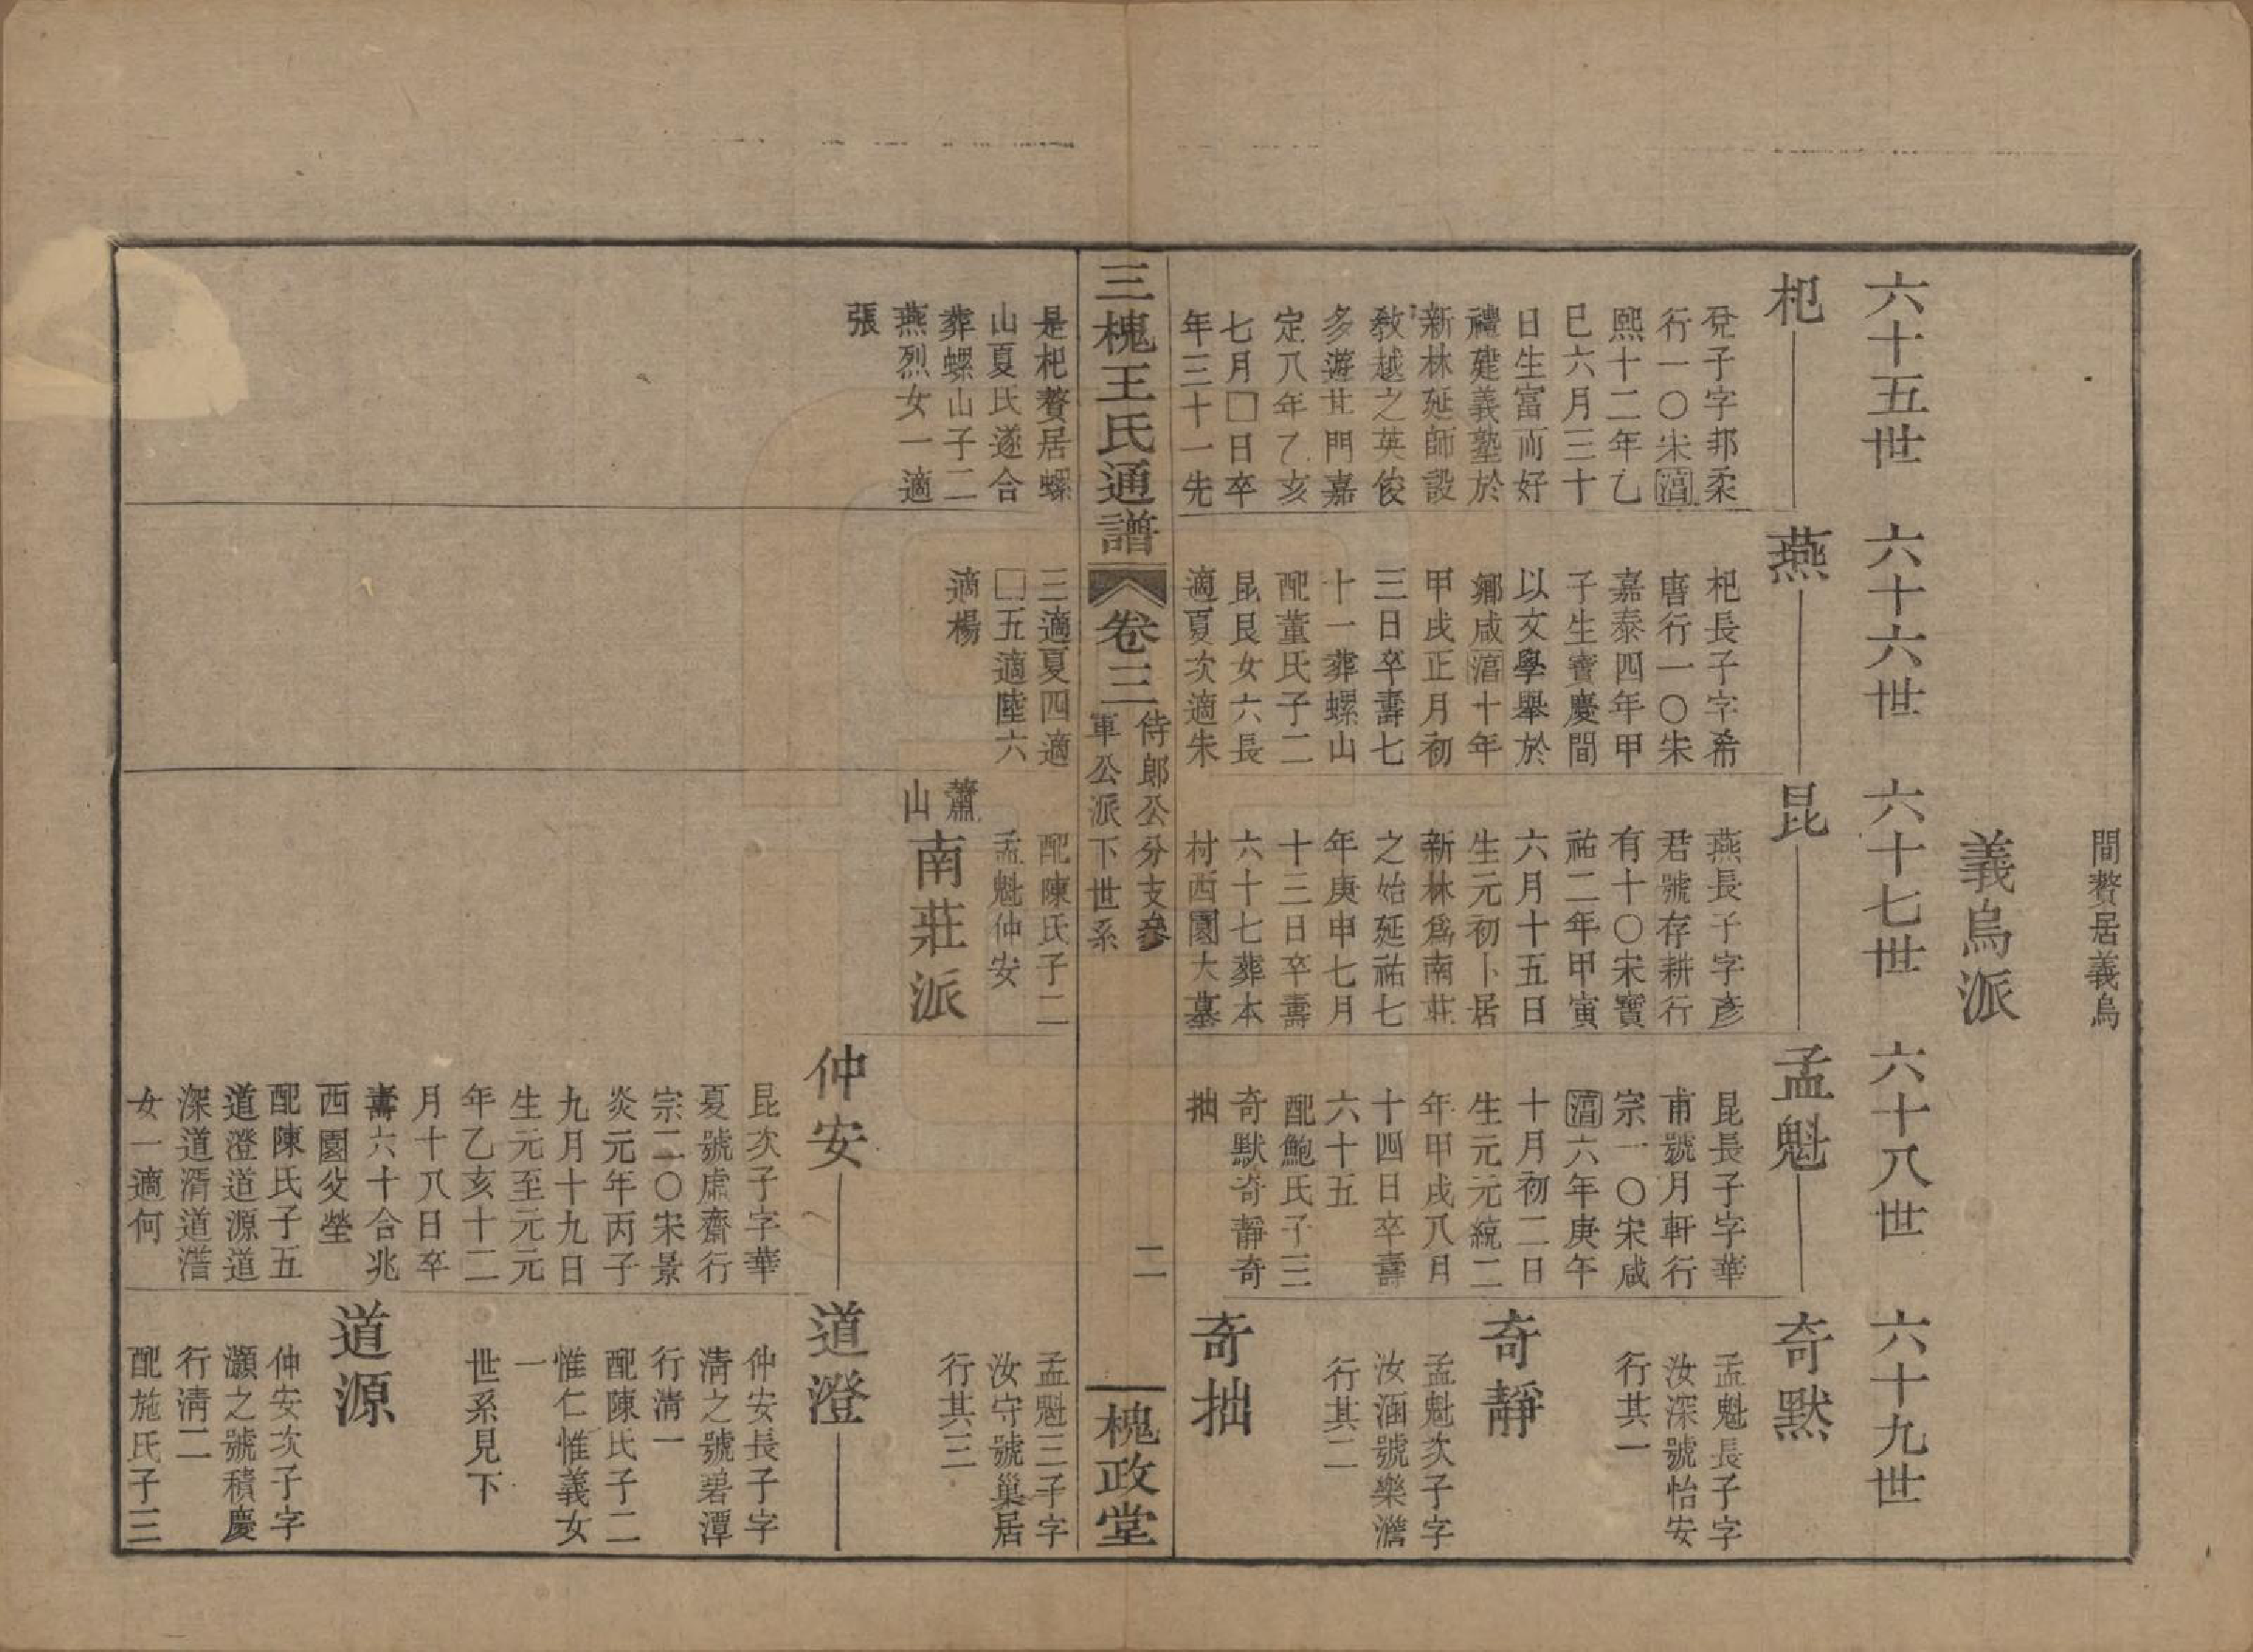 間贅居義烏
義烏派
六十五世
六十六世
六十七世
六十八世
六十九世
杞
兌子字邦柔
行一〇宋淳
熙十二年乙
巳六月三十
日生富而好
禮建義塾於
新林延師設
教越之英俊
多遊其門嘉
定八年乙亥
七月□日卒
年三十一先
燕
杞長子字希
唐行一〇宋
嘉泰四年甲
子生寶慶間
以文學舉於
鄉咸淳十年
甲戌正月初
三日卒壽七
十一葬螺山
配董氏子二
昆艮女六長
適夏次適朱
昆
燕長子字彥
君號存耕行
有十〇宋寶
祐二年甲寅
六月十五日
生元初卜居
新林爲南莊
之始延祐七
年庚申七月
十三日卒壽
六十七葬本
村西園大墓
孟魁
昆長子字華
甫號月軒行
宗一〇宋咸
淳六年庚午
十月初二日
生元元統二
年甲戌八月
十四日卒壽
六十五
配鮑氏子三
奇默奇靜奇
拙
奇默
孟魁長子字
汝深號怡安
行其一
奇靜
孟魁次子字
汝涵號樂澹
行其二
奇拙
三槐王氏通譜
卷三
侍郎公分支參
軍公派下世系
二
槐政堂
是杞贅居螺
山夏氏遂合
葬螺山子二
燕烈女一適
張
三適夏四適
□五適陸六
適楊
配陳氏子二
孟魁仲安
蕭山
南莊派
孟魁三子字
汝守號巢居
行其三
仲安
昆次子字華
夏號虛齋行
宗二〇宋景
炎元年丙子
九月十九日
生元至元元
年乙亥十二
月十八日卒
壽六十合兆
西園父塋
配陳氏子五
道澄道源道
深道湑道濳
女一適何
道澄
仲安長子字
淸之號碧潭
行淸一
配陳氏子二
惟仁惟義女
一
世系見下
道源
仲安次子字
灝之號積慶
行淸二
配施氏子三